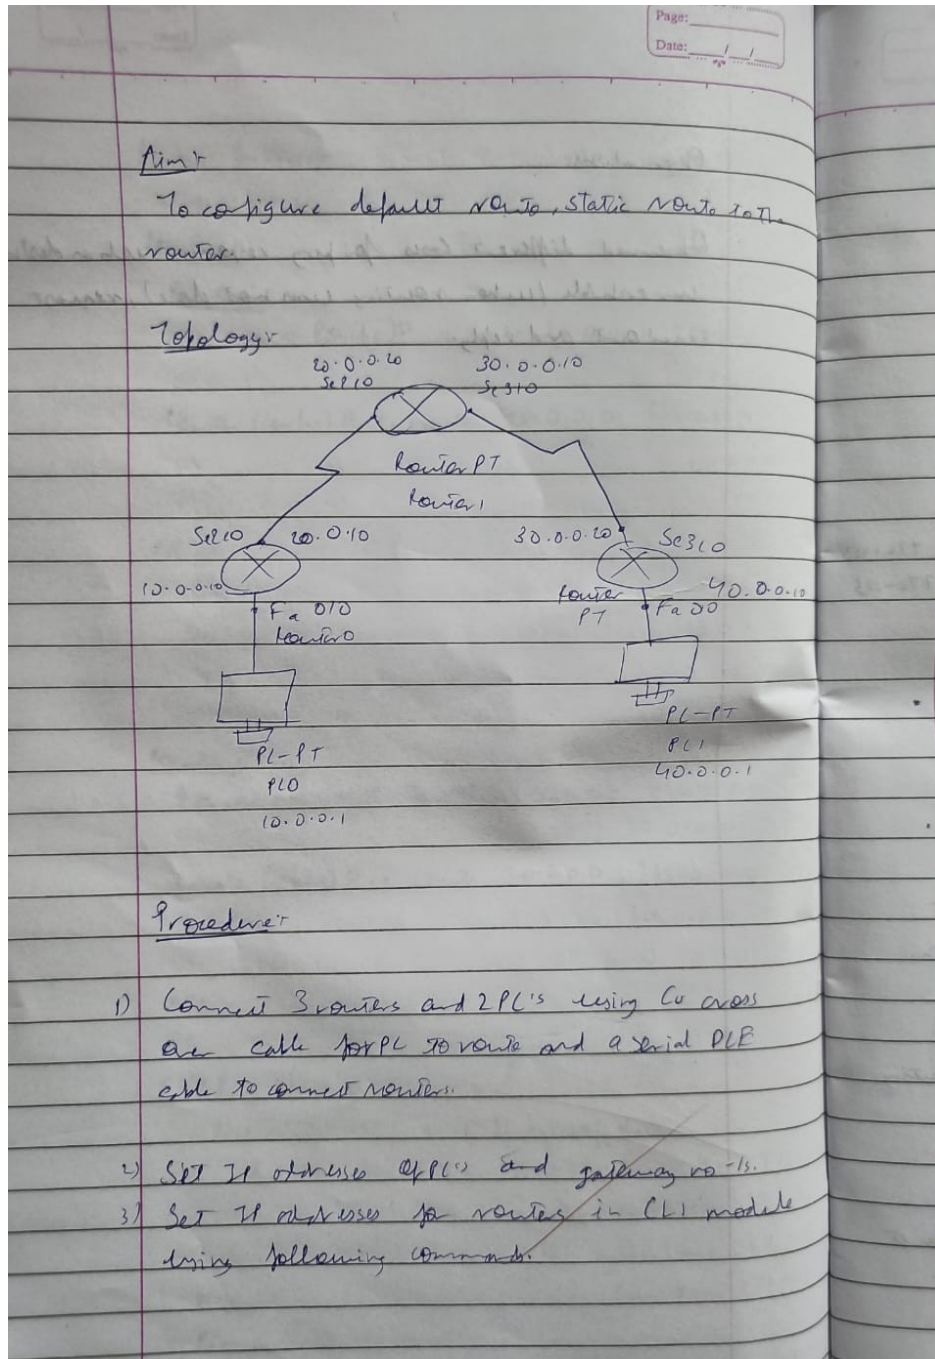 Page:
Date: / /
Aim:
To configure default route, static route to the
router.
Topology:
20.0.0.20 30.0.0.10
Se2/0 Se3/0
Router PT
Router 1
Se2/0 20.0.10 30.0.0.20 Se3/0
10.0.0.10 Router 40.0.0.10
Fa 0/0 PT Fa 00
Router0
PC-PT PC-PT
PC0 PC1
10.0.0.1 40.0.0.1
Procedure:
1) Connect 3 routers and 2 PC's using Cu cross
over cable for PC to route and a serial DCE
cable to connect routers.
2) Set IP addresses of PC's and gateway
3) Set IP addresses for routers in CLI module
using following commands.